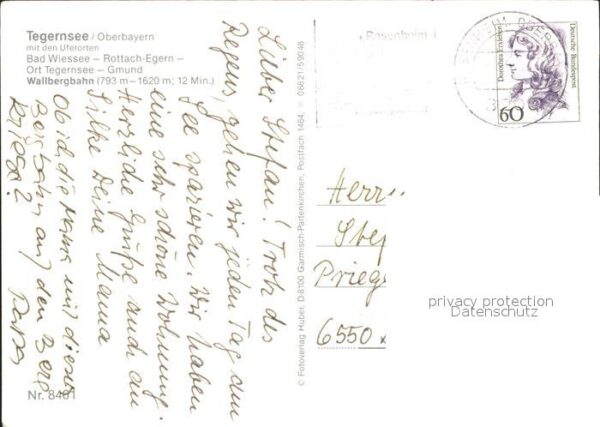 Tegernsee / Oberbayern
mit den Uferorten
Bad Wiessee – Rottach-Egern –
Ort Tegernsee – Gmund
Wallbergbahn (793 m – 1620 m; 12 Min.)
Lieber Stefan! Trotz des
Regens, gehen wir jeden Tag am
See spazieren. Wir haben
eine sehr schöne Wohnung.
Herzliche Grüße auch an
Silke Deine Mama
Ob ich die Mama mit dieser
Bergbahn auf den Berg
kriege?
Papa
Nr. 8401
© Fotoverlag Huber, D-8100 Garmisch-Partenkirchen, Postfach 1464, ☏ 08821/59046
Rosenheim
Dorothea Erxleben
Deutsche Bundespost
60
Herr
Stef
Priegs
6550
privacy protection
Datenschutz